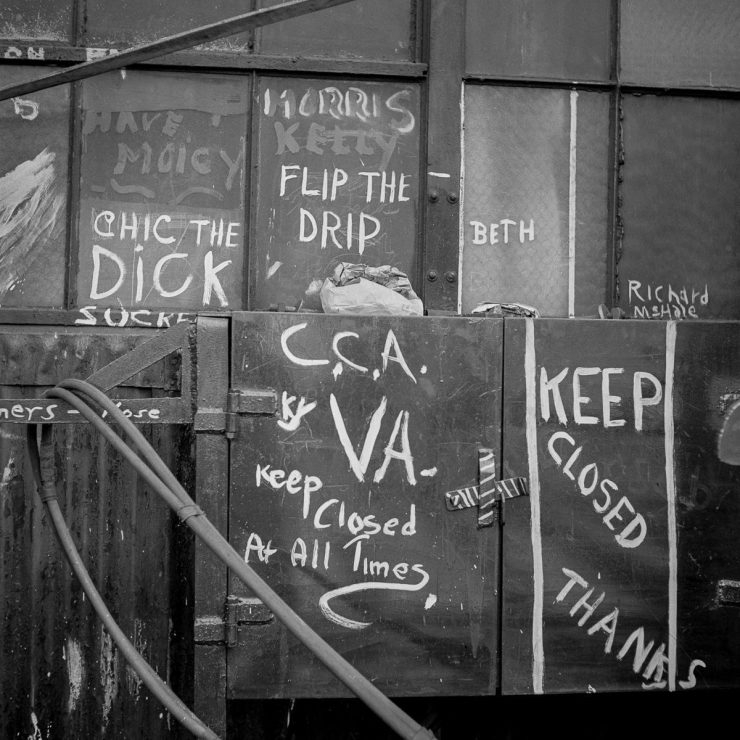 HAVE
MOICY
CHIC THE
DICK
SUCKE
MORRIS
KELLY
FLIP THE
DRIP
BETH
Richard
McHale
ners - Nose
C.C.A.
Ky
VA.
Keep
Closed
At All Times
KEEP
CLOSED
THANKS